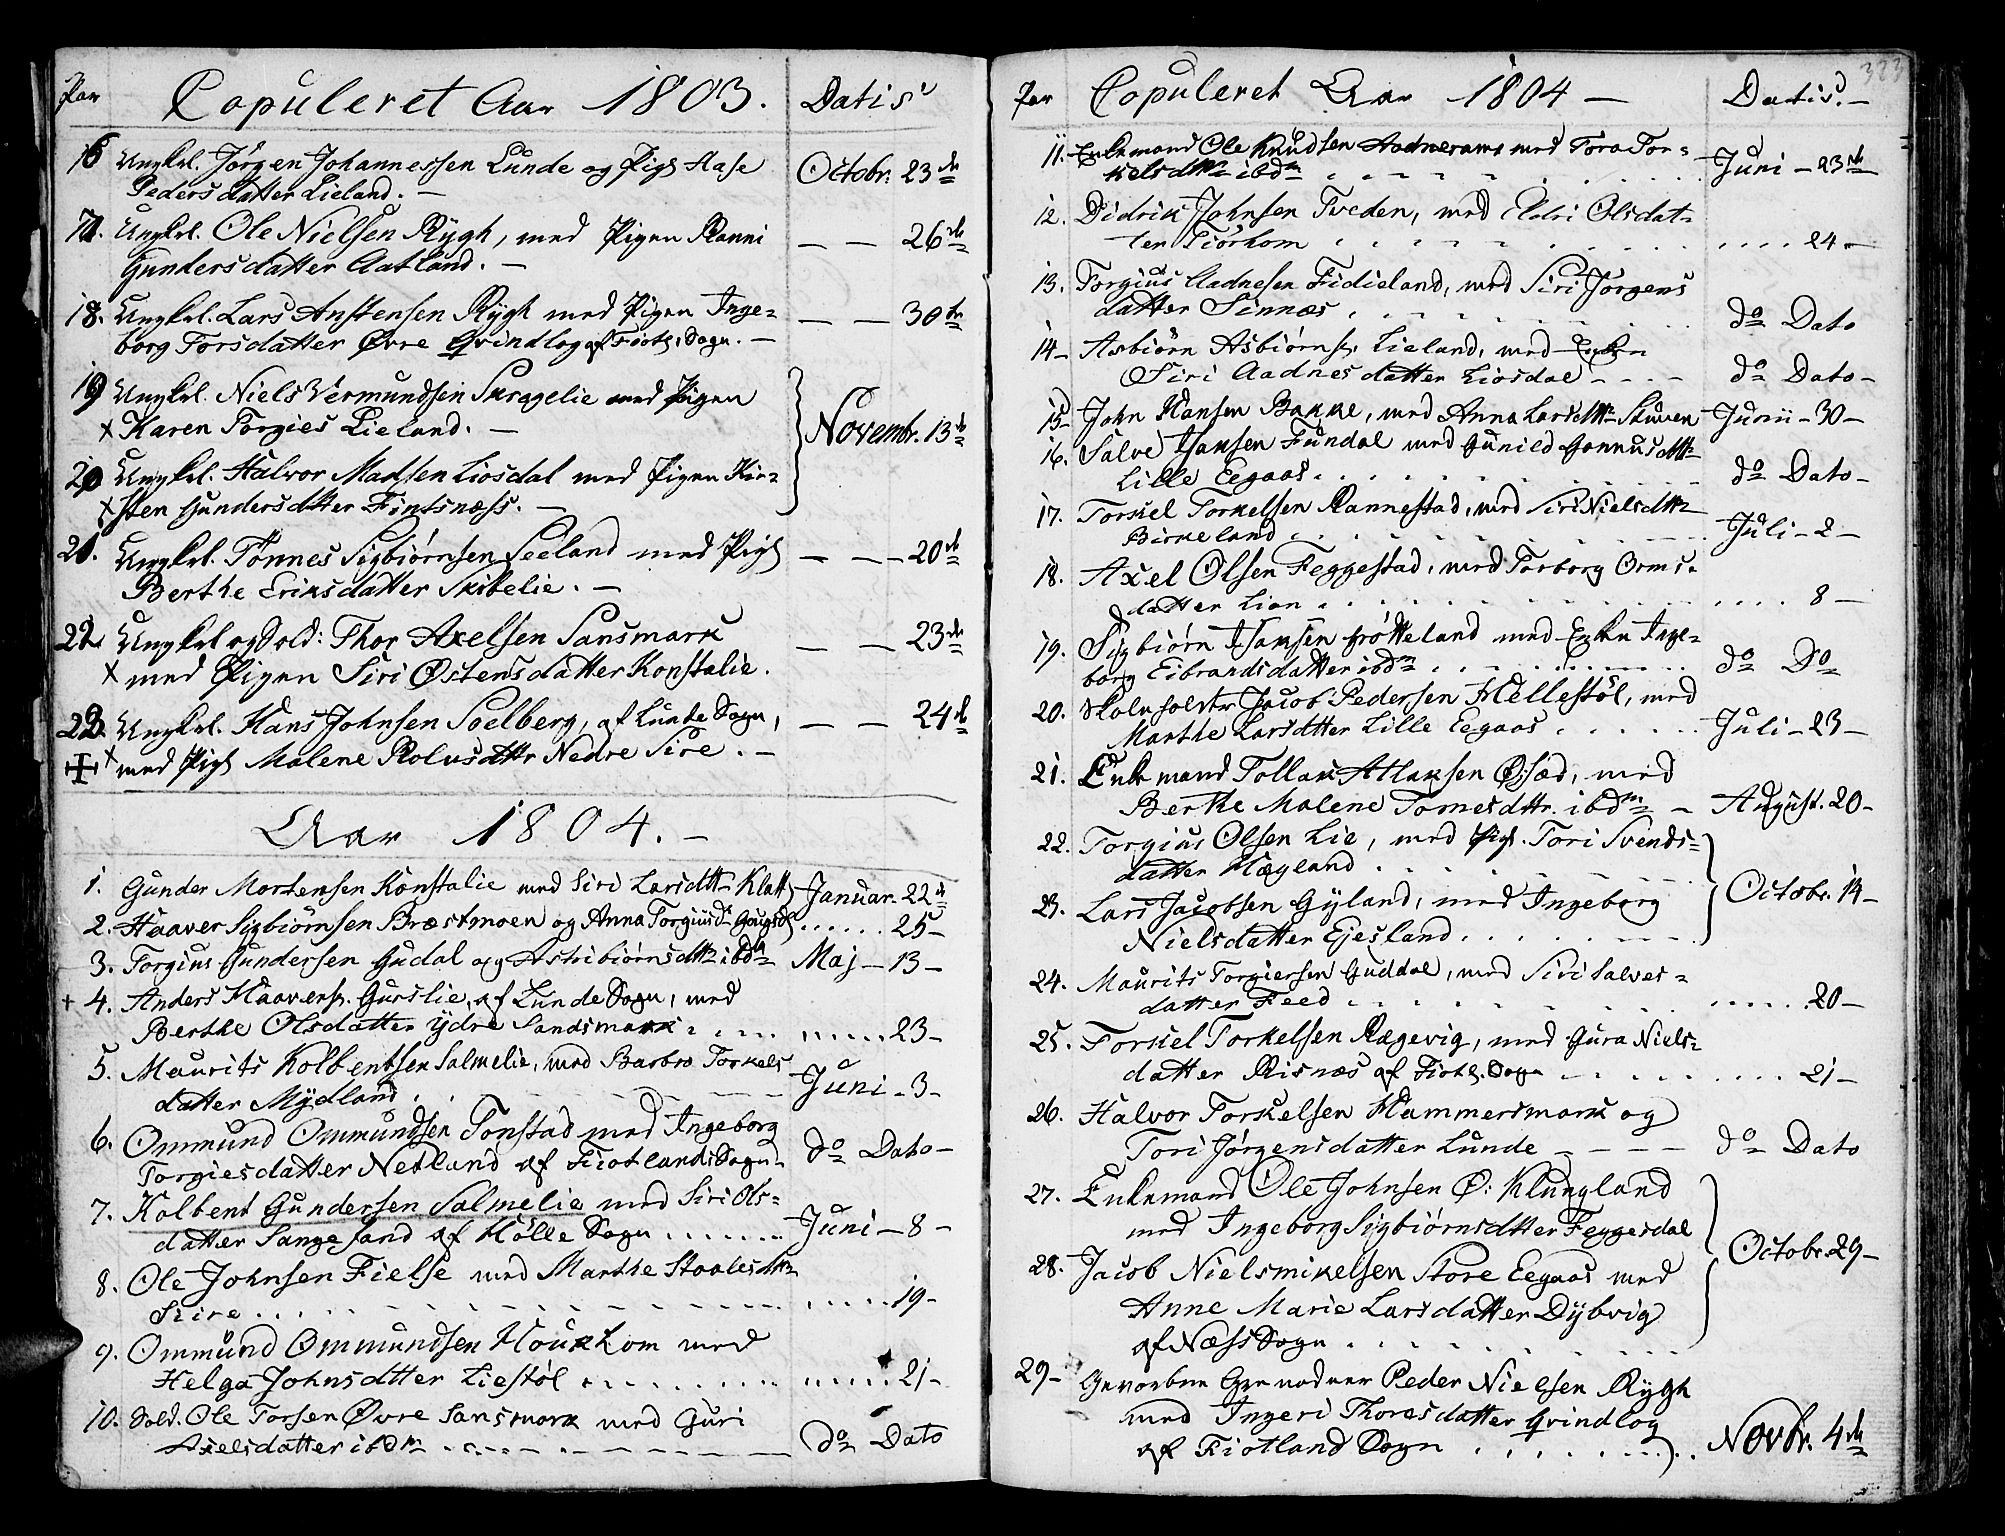 Par Copuleret Aar 1803. Datis
16 Ungkrl. Jørgen Johannessen Lunde og Pig: Aase Octobr. 23de
Peders datter Lieland. —
17. Ungkrl. Ole Nielsen Rygh, med Pigen Ranni — — 26de
Gundersdatter Aatland. —
18. Ungkrl. Lars Anstensen Rygh med Pigen Inge= — — 30te
borg Torsdatter Øvre Qvindlog af Fiotl: Sogn. —
19 Ungkrl. Niels Vermundsen Skragelie med Pigen
x Karen Torgies Lieland. — Novembr. 13de
20 Ungkrl. Halvor Madsen Liosdal med Pigen Kir=
x sten Gundersdtter Fintsnæss. —
21. Ungkrl. Tønnes Sigbiørnsen Seeland med Pig: — — 20de
Berthe Eriksdatter Skibelie. —
22. Ungkrl og Sold: Thor Axelsen Sansmark — — 23de
x med Pigen Siri Østensdatter Konstalie.
23. Ungkrl. Hans Johnsen Soelberg, af Lunde Sogn, — — 24de
x med Pig: Malene Rolusdttr Nedre Sire. —
Aar 1804. —
1. Gunder Mortensen Konstalie med Siri Larsdttr Klatt Januar. 22de
2. Haaver Sigbiørnsen Bræstmoen og Anna Torgiusdr ...... 25 —
3. Torgius Gundersen Gudal og Astribiørnsdttr ibdm Maj — 13 —
+ 4. Anders Haavers. Gurslie, af Lunde Sogn, med
Berthe Olsdatter ydre Sandsmark ...... 23 —
5. Maurits Kolbentsen Salmelie, med Barbro Torkels
datter Mydland. Juni — 3 —
6. Ommund Ommundsen Tonstad med Ingeborg
Torgiesdatter Netland af Fiotland Sogn. do Dato —
7. Kolbent Gundersen Salmelie med Siri Ols=
datter Sangesand af Hølle Sogn ....... Juni — 8 —
8. Ole Johnsen Fielse med Marthe Staalesdttr
Siire ...... 19 —
9. Ommund Ommundsen Houkhom med
Helga Johnsdtter Liestøl ...... 21 —
10. Sold. Ole Torsen Øvre Sansmark med Guri
Axelsdatter ibdm do Dato
323
Par Copuleret Aar 1804 — Datis. —
11. Enkemand Ole Knudsen Aadneram med Tora Tor=
kelsdttr ibdm Juni — 23de
12. Didrik Johnsen Tveden, med Eldri Olsdat=
ter Tiørhom .... 24 —
13. Torgius Aadnesen Fidieland, med Siri Jørgens
datter Sinnæs do Dato
14 — Asbiørn Asbiørns. Lieland, med Enken
Siri Aadnesdatter Liosdal — do Dato —
15 — John Hansen Bakke, med Anna Larsdttr Stuven Junii — 30 —
16. Salve Isaksen Fundal med Gunild Gonnusdttr
Lille Eegaas. do Dato —
17. Torkel Torkelsen Rannestad, med Siri Nielsdttr
Birkeland Juli — 2 —
18. Axel Olsen Feggestad, med Torborg Orms=
datter Lien .... 8 —
19. Sigbiørn Isaksen Frøtteland med Enken Inge=
borg Eibrandsdatter ibdm do Do
20. Skoleholder Jacob Pedersen Hellestøl, med
Marthe Larsdtter Lille Eegaas Juli — 23 —
21. Enkemand Tollak Atlaksen Øysæd, med
Berthe Malene Tomesdttr. ibdm — August. 20 —
22. Torgius Olsen Lie, med Pig: Tori Svends=
datter Hægland
23. Lars Jacobsen Gyland, med Ingeborg Octobr. 14 —
Nielsdatter Ejesland.
24. Maurits Torgiersen Guddal, med Siri Salves=
datter Feed ..... 20 —
25. Torkel Torkelsen Rægevig, med Gura Niels=
datter Risnæs af Fiotl. Sogn .... 21 —
26. Halvor Torkelsen Hammersmark og
Tori Jørgensdatter Lunde do Dato
27. Enkemand Ole Johnsen Ø: Klungland
med Ingeborg Sigbiørnsdtter Feggesdal
28. Jacob Nielsmikelsen Store Eegaas med Octobr. 29 —
Anne Marie Larsdatter Dybvig
af Næss Sogn
29 — Gevorbne Grenadeer Peder Nielsen Rygh
med Ingeri Thoresdatter Qvindlog
af Fiotland Sogn Novbr. 4de